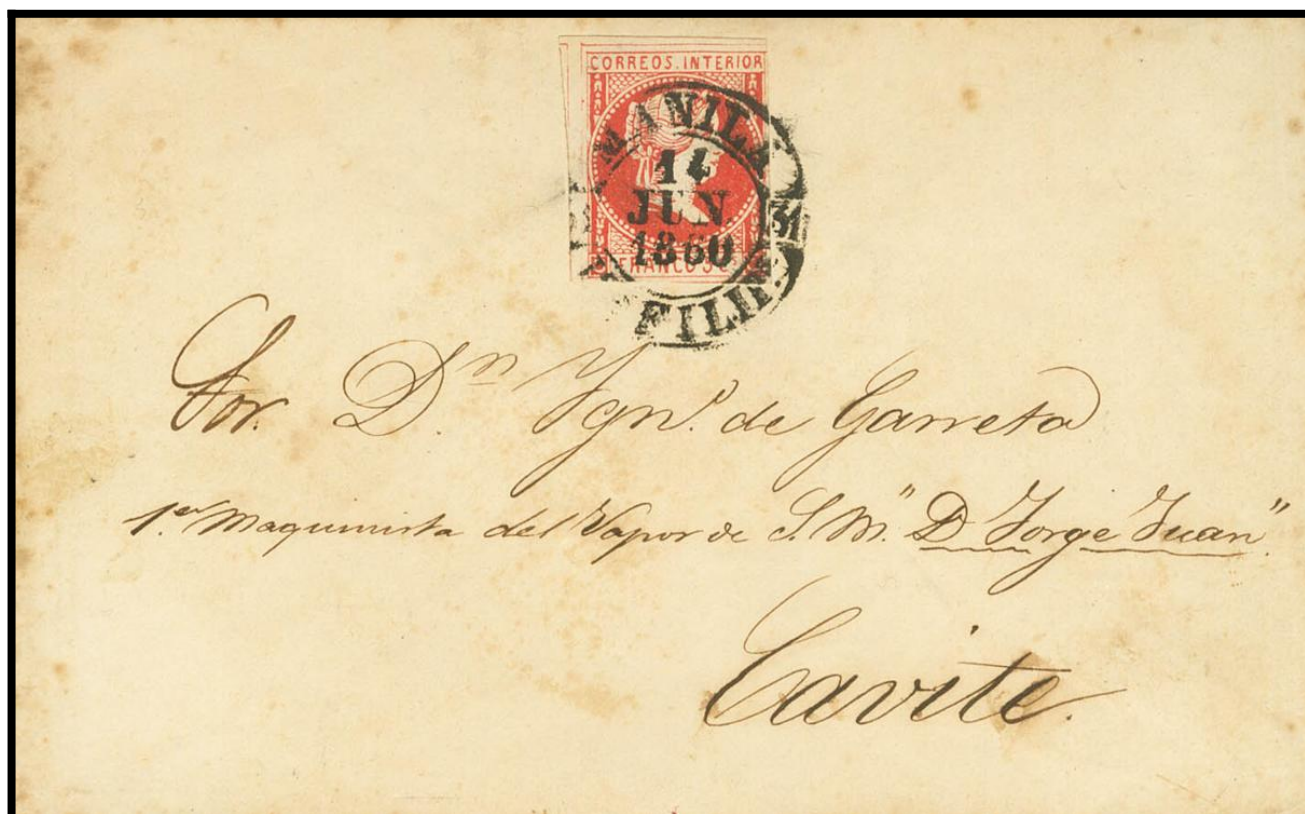 CORREOS. INTERIOR
MANILA
14
JUN.
1860
31
FRANCO 5 C
FILIP.
Sor. Dn. Ygno. de Garreta
1er. Maquinista del Vapor de S. M. "D Jorge Juan".
Cavite.